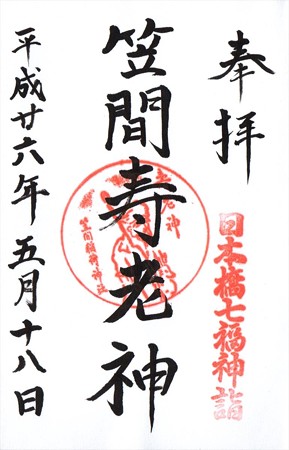 奉拝
日本橋七福神詣
笠間寿老神
寿老神
笠間稲荷神社
平成廿六年五月十八日